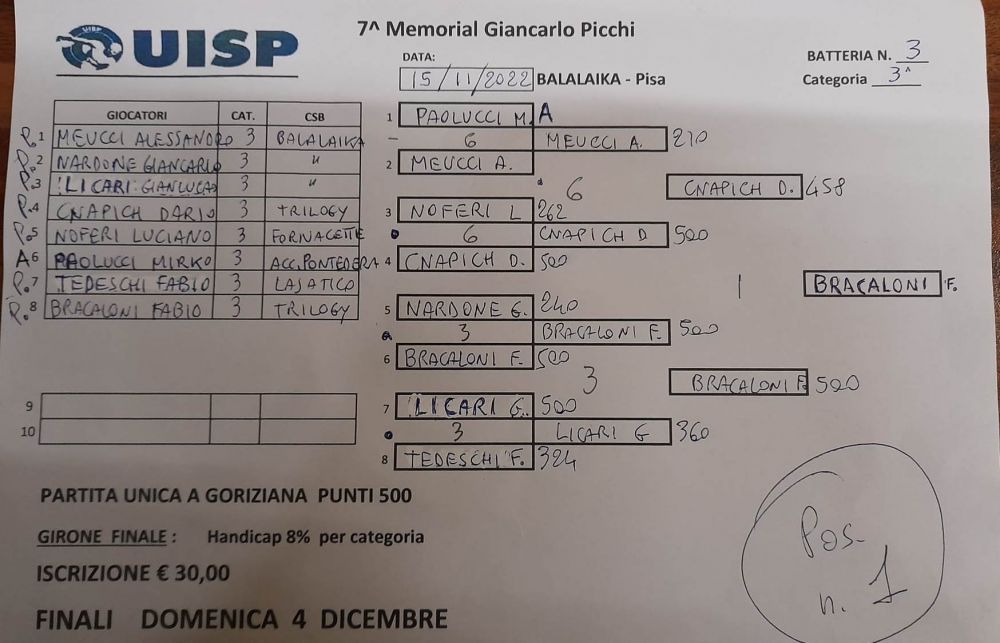 UISP
7^ Memorial Giancarlo Picchi
DATA:
15/11/2022 BALALAIKA - Pisa
BATTERIA N. 3
Categoria 3^
GIOCATORI CAT. CSB
P.1 MEUCCI ALESSANDRO 3 BALALAIKA
P.2 NARDONE GIANCARLO 3 "
P.3 LICARI GIANLUCA 3 "
P.4 CNAPICH DARIO 3 TRILOGY
P.5 NOFERI LUCIANO 3 FORNACETTE
A6 PAOLUCCI MIRKO 3 ACC. PONTEDERA
P.7 TEDESCHI FABIO 3 LAJATICO
P.8 BRACALONI FABIO 3 TRILOGY
9
10
1 PAOLUCCI M. A
6 MEUCCI A. 210
2 MEUCCI A.
6 CNAPICH D. 458
3 NOFERI L 262
6 CNAPICH D 500
4 CNAPICH D. 500
1 BRACALONI F.
5 NARDONE G. 240
3 BRACALONI F. 500
6 BRACALONI F. 500
3 BRACALONI F. 500
7 LICARI G. 500
3 LICARI G 360
8 TEDESCHI F. 324
PARTITA UNICA A GORIZIANA PUNTI 500
GIRONE FINALE : Handicap 8% per categoria
ISCRIZIONE € 30,00
FINALI DOMENICA 4 DICEMBRE
Pos.
n. 1